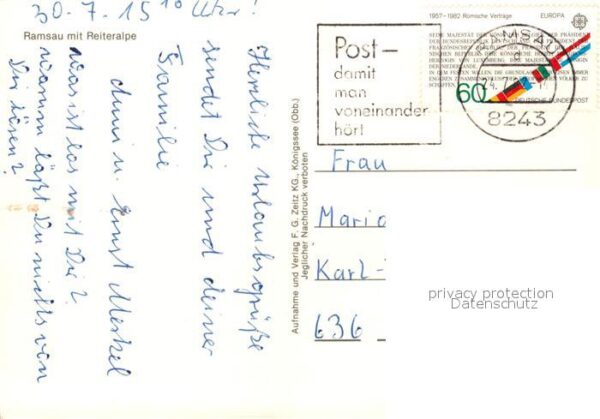 30.7. 15¹⁰ Uhr!
Ramsau mit Reiteralpe
Herzliche Urlaubsgrüße
sendet Dir und deiner
Familie
Ernst Merkel
was ist los mit Dir?
warum läßt Du nichts von
Dir hören?
Aufnahme und Verlag F. G. Zeitz KG., Königssee (Obb.)
Jeglicher Nachdruck verboten
Post –
damit
man
voneinander
hört
1957–1982 Römische Verträge EUROPA
60 DEUTSCHE BUNDESPOST
8243
Frau
Karl-
636
privacy protection
Datenschutz